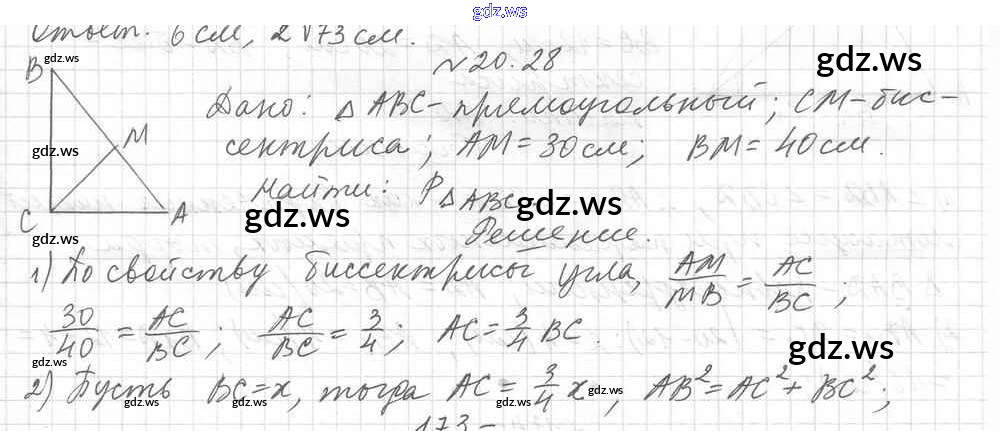 gdz.ws
Ответ. 6 см, 2√73 см.
№20.28
gdz.ws
B
Дано: △ABC - прямоугольный; CM - бис-
gdz.ws
M
gdz.ws
сектриса; AM = 30 см; BM = 40 см.
Найти: P△ABC -
gdz.ws
gdz.ws
C
A
gdz.ws
Решение.
1) По свойству биссектрисы угла, AM/MB = AC/BC ;
30/40 = AC/BC ; AC/BC = 3/4 ; AC = 3/4 BC.
gdz.ws
gdz.ws
2) Пусть BC = x, тогда AC = 3/4 x, AB² = AC² + BC² ;
gdz.ws
gdz.ws
gdz.ws
gdz.ws